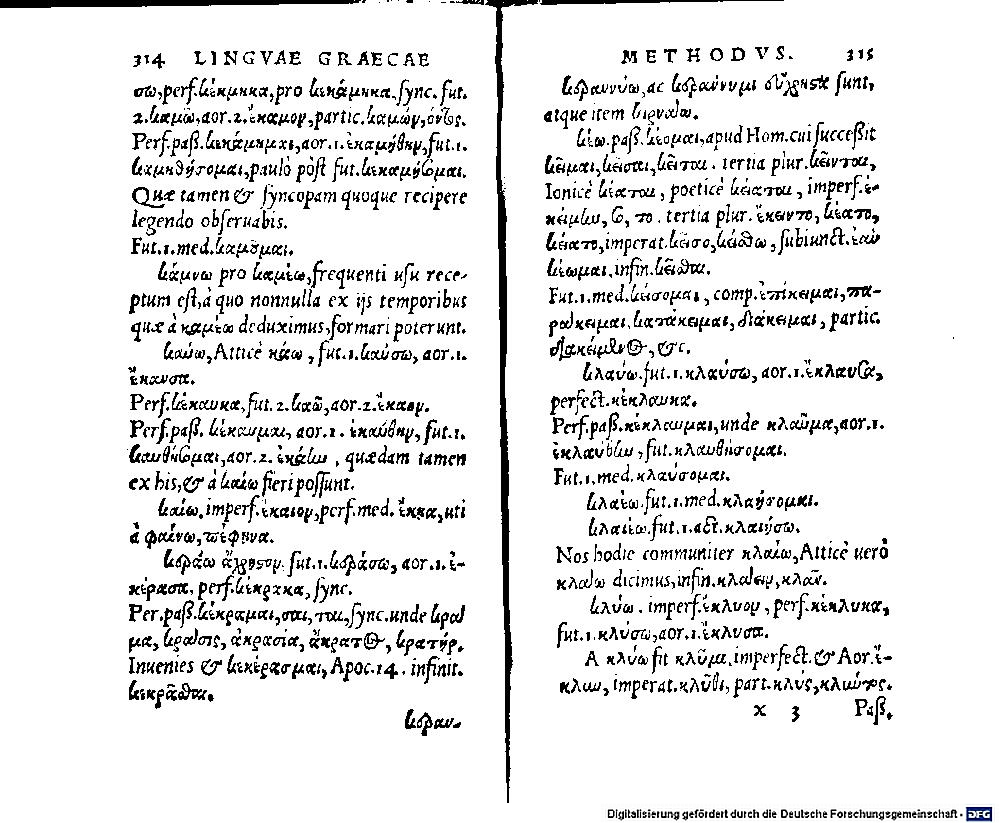 314 LINGVAE GRAECAE
σω, perf. κέκμηκα, pro κεκάμηκα. sync. fut.
2. καμῶ, aor. 2. ἔκαμον, partic. καμών, όντος.
Perf. paß. κεκάμημαι, aor. 1. ἐκαμήθην, fut. 1.
καμηθήσομαι, paulò pòst fut. κεκαμήσομαι.
Quæ tamen & syncopam quoque recipere
legendo obseruabis.
Fut. 1. med. καμοῦμαι.
κάμνω pro καμέω, frequenti usu rece-
ptum est, à quo nonnulla ex ijs temporibus
quæ à καμέω deduximus, formari poterunt.
καύω, Atticè κάω, fut. 1. καύσω, aor. 1.
ἔκαυσα.
Perf. κέκαυκα, fut. 2. καῶ, aor. 2. ἔκαον.
Perf. paß. κέκαυμαι, aor. 1. ἐκαύθην, fut. 1.
καυθήσομαι, aor. 2. ἐκάην, quædam tamen
ex his, & à καίω fieri possunt.
καίω, imperf. ἔκαιον, perf. med. ἔκηα, uti
à φαίνω, πέφηνα.
κεράω ἄχρηστον. fut. 1. κεράσω, aor. 1. ἐ-
κέρασα, perf. κέκρακα, sync.
Per. paß. κέκραμαι, σαι, ται, sync. unde κρᾶ
μα, κρᾶσις, ἀκρασία, ἄκρατος, κρατήρ.
Inuenies & κεκέρασμαι, Apoc. 14. infinit.
κεκρᾶσθαι.
κεραν-
METHODVS. 315
κεραννύω, ac κεράννυμι εὔχρηστα sunt,
atque item κιρνάω.
κέω, paß. κέομαι, apud Hom. cui succeßit
κεῖμαι, κεῖσαι, κεῖται. tertia plur. κεῖνται,
Ionicè κέαται, poeticè κείαται, imperf. ἐ-
κείμην, σο, το. tertia plur. ἔκειντο, κέατο,
κείατο, imperat. κεῖσο, κείσθω, subiunct. ἐὰν
κέωμαι, infin. κεῖσθαι.
Fut. 1. med. κείσομαι, comp. ἐπίκειμαι, πα-
ράκειμαι, κατάκειμαι, διάκειμαι, partic.
διακείμενος, &c.
κλαύω. fut. 1. κλαύσω, aor. 1. ἔκλαυσα,
perfect. κέκλαυκα.
Perf. paß. κέκλαυμαι, unde κλαῦμα, aor. 1.
ἐκλαύθην, fut. κλαυθήσομαι.
Fut. 1. med. κλαύσομαι.
κλαέω. fut. 1. med. κλαήσομαι.
κλαιέω. fut. 1. act. κλαιήσω.
Nos hodie communiter κλαίω, Atticè uerò
κλάω dicimus, infin. κλάειν, κλᾶν.
κλύω. imperf. ἔκλυον, perf. κέκλυκα,
fut. 1. κλύσω, aor. 1. ἔκλυσα.
A κλύω fit κλῦμι, imperfect. & Aor. ἔ-
κλυν, imperat. κλῦθι, part. κλύς, κλύντος.
x 3 Paß.
Digitalisierung gefördert durch die Deutsche Forschungsgemeinschaft - DFG